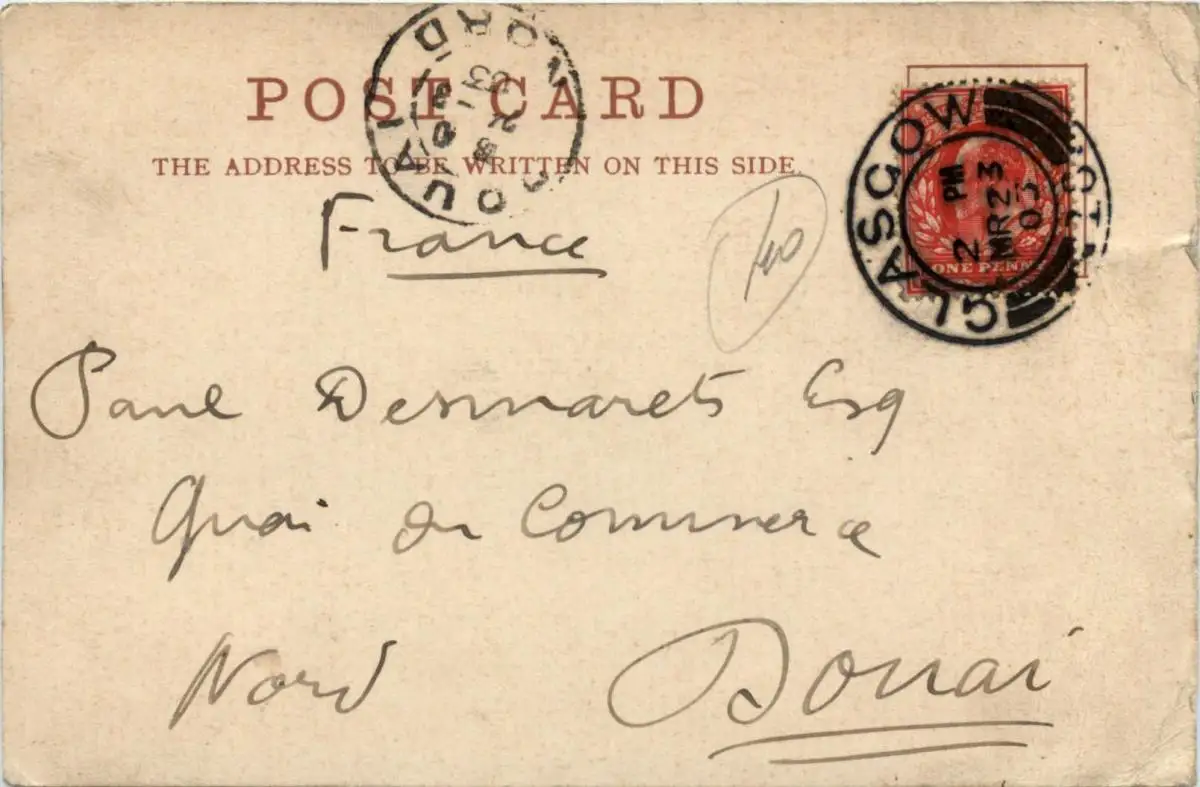 POST CARD
THE ADDRESS TO BE WRITTEN ON THIS SIDE.
DOUAI NORD
03
GLASGOW
2 PM
MR 23
03
ONE PENNY
France
Paul Desmarets Esq
Quai du Commerce
Nord Douai